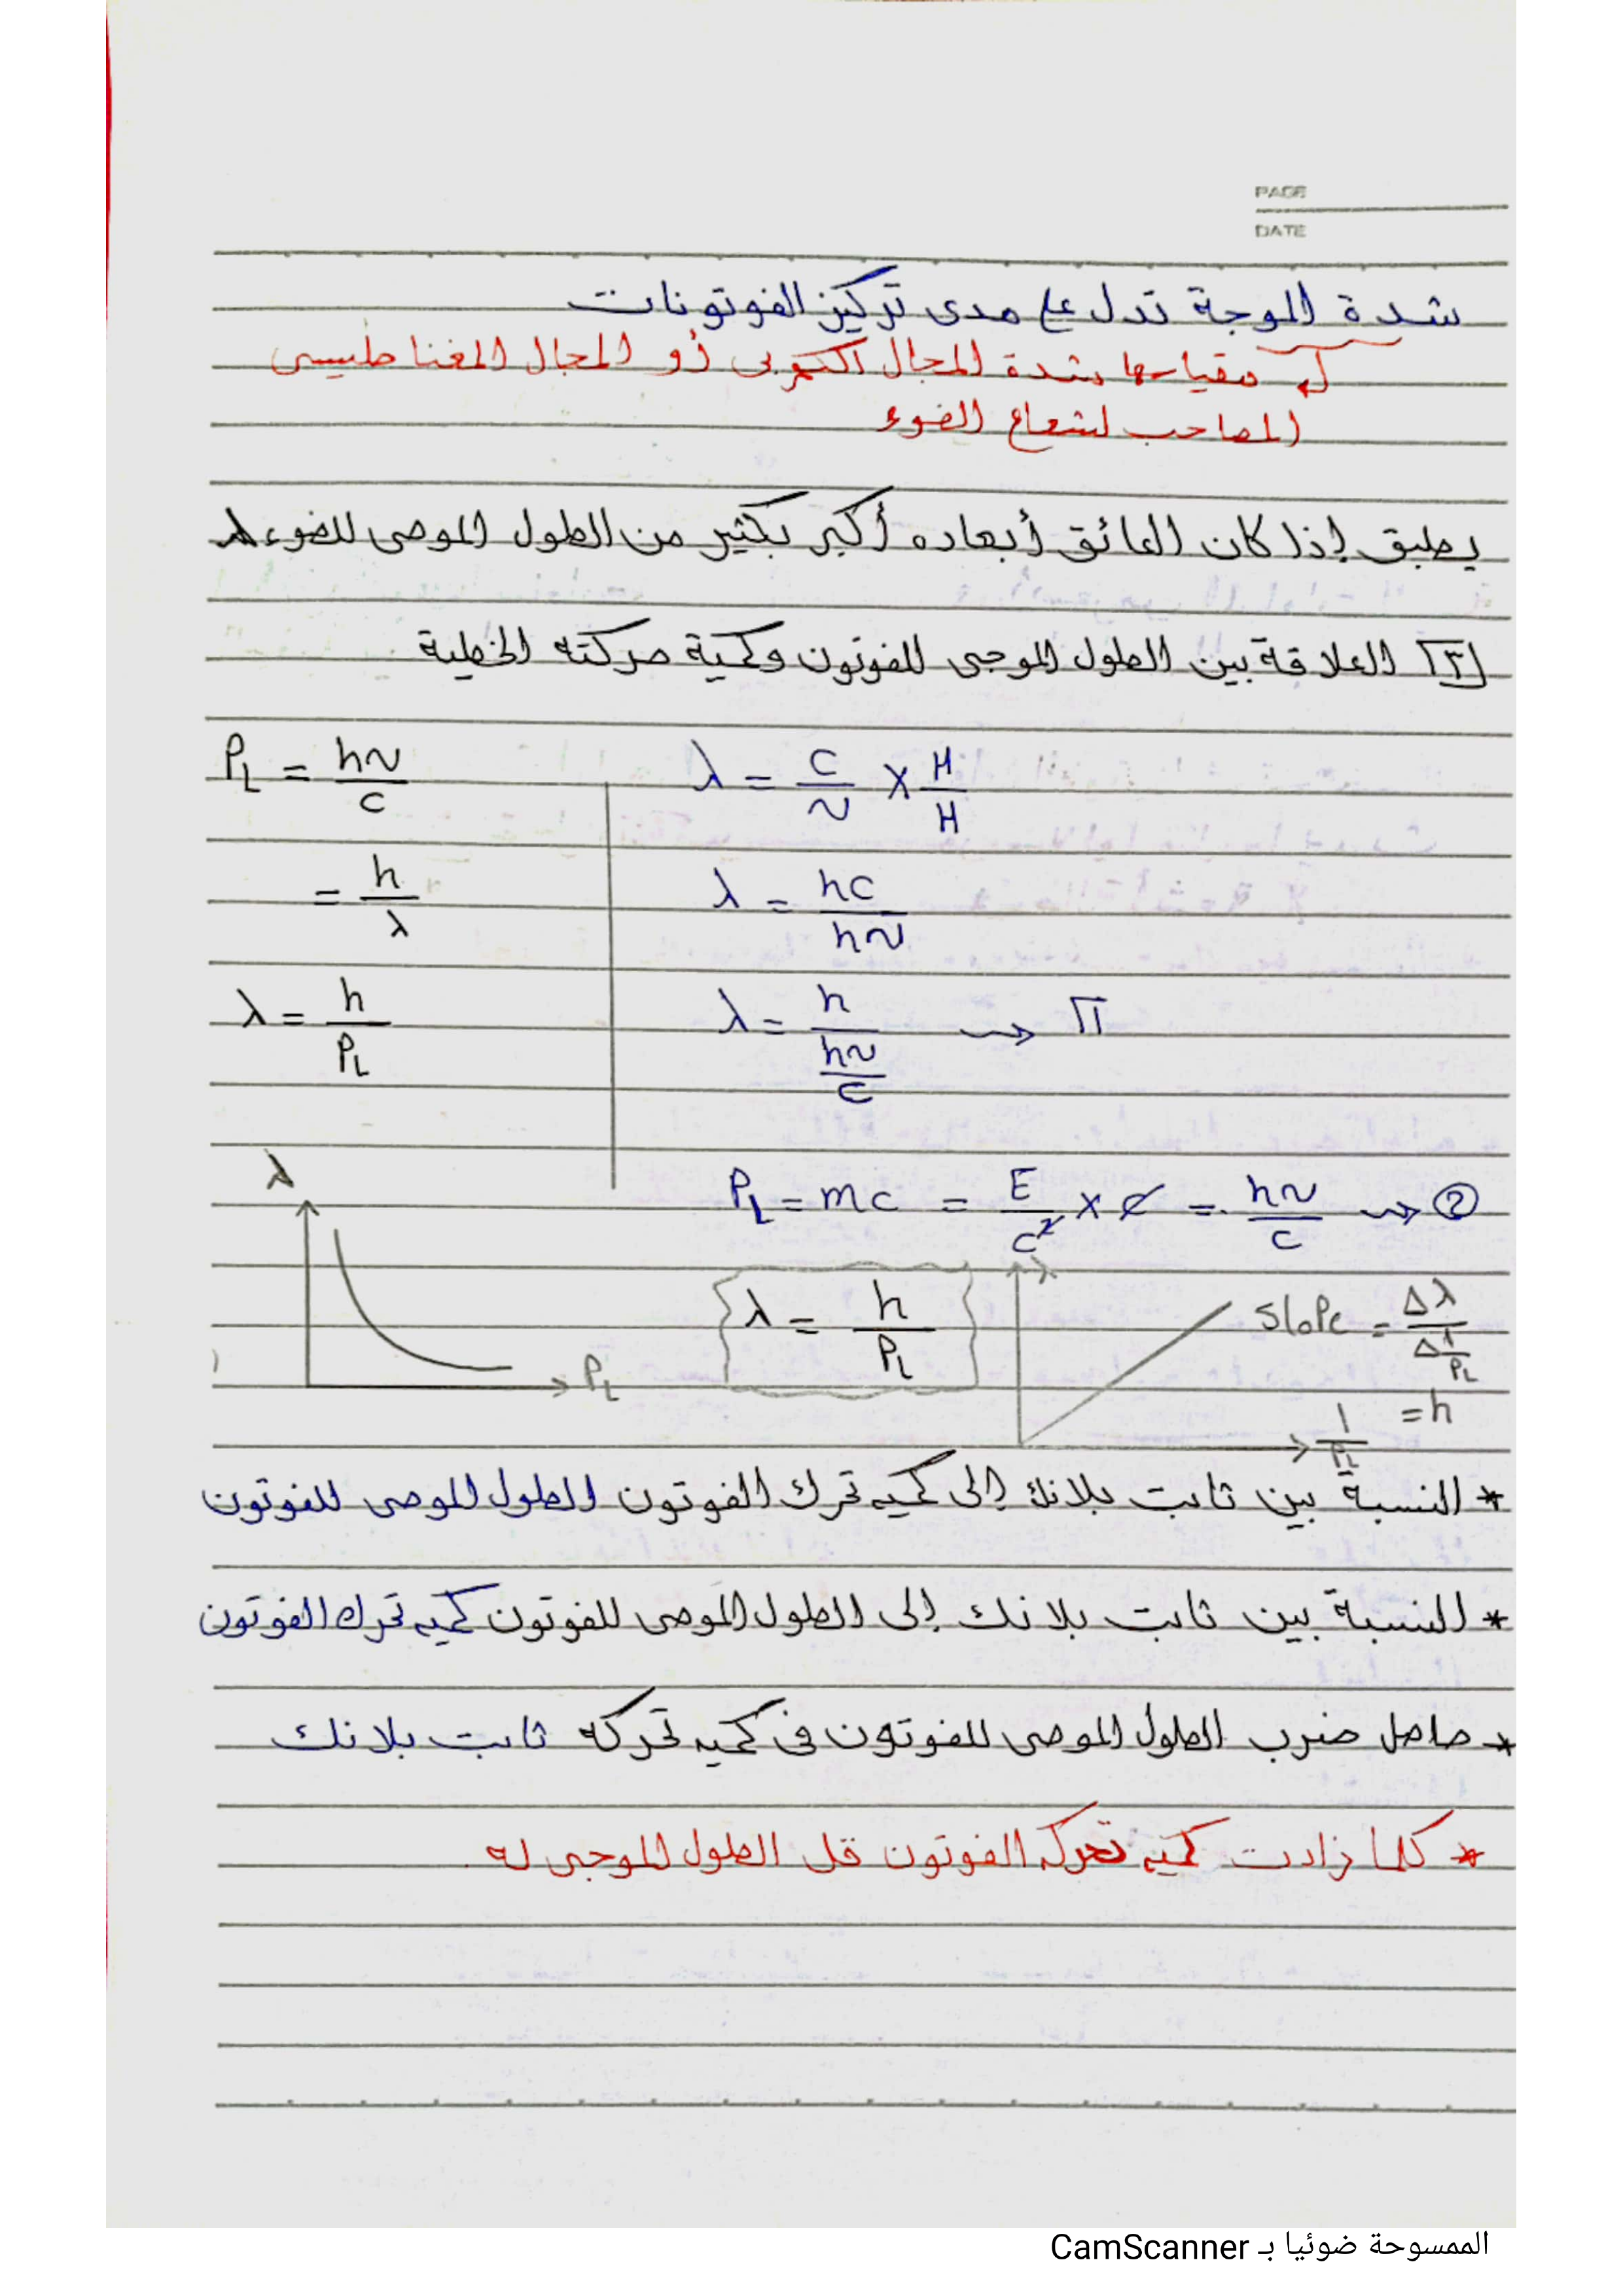 PAGE
DATE
شدة الموجة تدل على مدى تركيز الفوتونات
مقياسها شدة المجال الكهربى أو المجال المغناطيسى
المصاحب لشعاع الضوء
يطبق إذا كان العائق أبعاده أكبر بكثير من الطول الموجى للضوء λ
[٣] العلاقة بين الطول الموجى للفوتون وكمية حركته الخطية
λ = c/ν × H/H
λ = hc/hν
λ = h/(hν/c) ⇝ 1
P_L = mc = E/c² × c = hν/c ⇝ ②
P_L = hν/c
= h/λ
λ = h/P_L
λ
P_L
λ = h/P_L
λ
Slope = Δλ/Δ(1/P_L)
= h
1/P_L
* النسبة بين ثابت بلانك إلى كميه تحرك الفوتون الطول الموجى للفوتون
* النسبة بين ثابت بلانك إلى الطول الموجى للفوتون كميه تحرك الفوتون
* حاصل ضرب الطول الموجى للفوتون فى كميه تحركه ثابت بلانك
* كلما زادت كميه تحرك الفوتون قل الطول الموجى له
الممسوحة ضوئيا بـ CamScanner